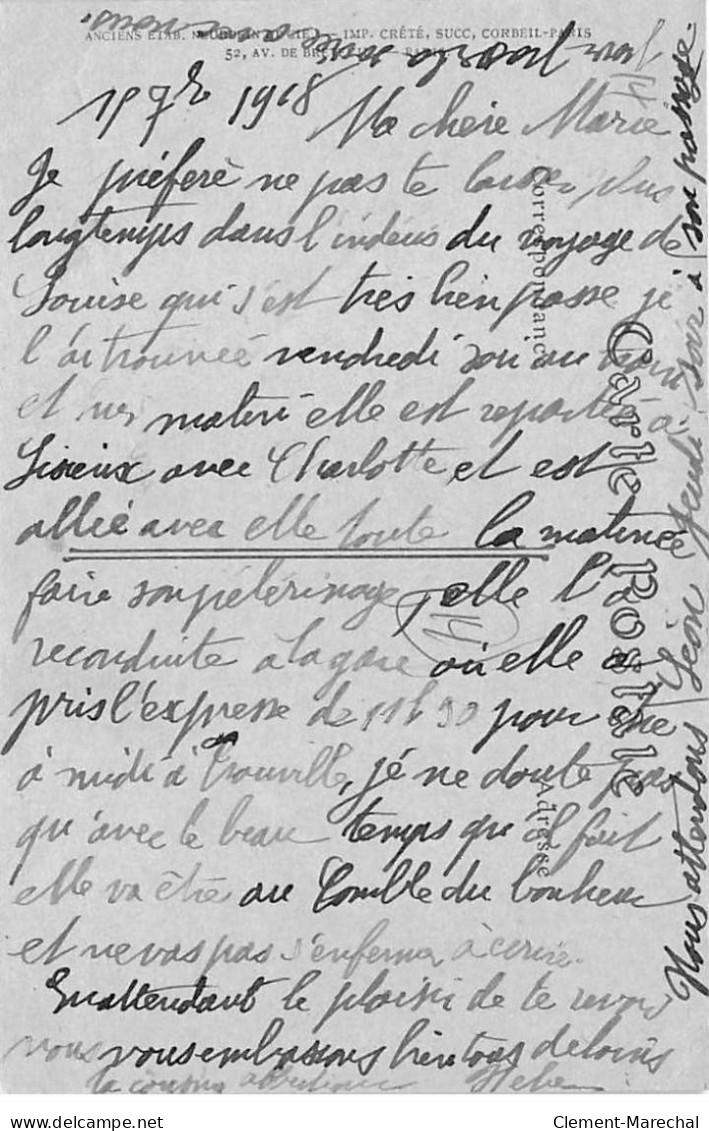 ANCIENS ETAB. NEURDEIN ET CIE. — IMP. CRÉTÉ, SUCC, CORBEIL-PARIS
52, AV. DE BRETEUIL — PARIS
15 7re 1918 Ma chère Marie
Je préfère ne pas te laisser plus
longtemps dans l'indécis du voyage de
Louise qui s'est très bien passé je
l'ai trouvée vendredi soir au train
et hier matin elle est repartie à
Lisieux avec Charlotte, et est
allée avec elle toute la matinée
faire son pélerinage, elle l'a
reconduite à la gare où elle a
pris l'expresse de 11h30 pour être
à midi à Trouville, je ne doute pas
qu'avec le beau temps qu'il fait
elle va être au comble du bonheur
et ne va pas s'enfermer à écrire.
En attendant le plaisir de te revoir
nous vous embrassons bien tous de loin
ta cousine affectionnée
Nous attendons Léon jeudi soir à son passage.
Correspondance
Carte Postale
Adresse
14
Clement-Marechal